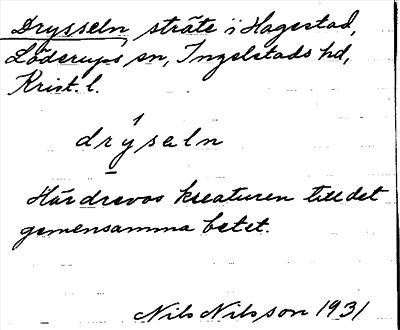 Drysseln, sträte i Hagestad,
Löderups sn, Ingelstads hd,
Krist. l.
drýseln
Här drevos kreaturen till det
gemensamma betet.
Nils Nilsson 1931